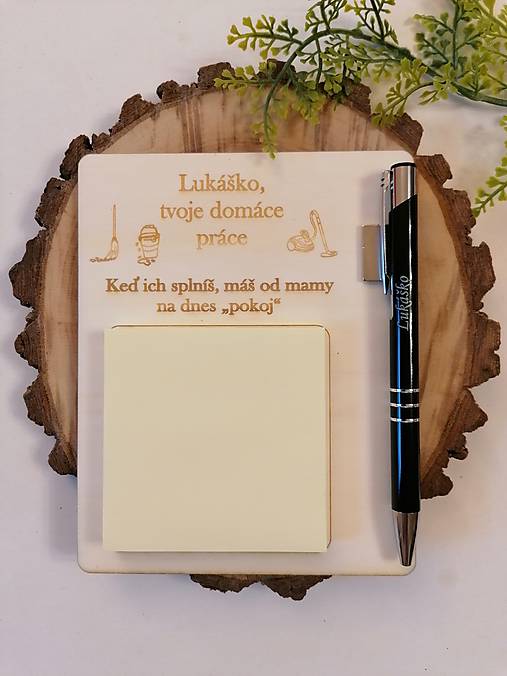 Lukáško,
tvoje domáce
práce
Keď ich splníš, máš od mamy
na dnes „pokoj“
Lukáško